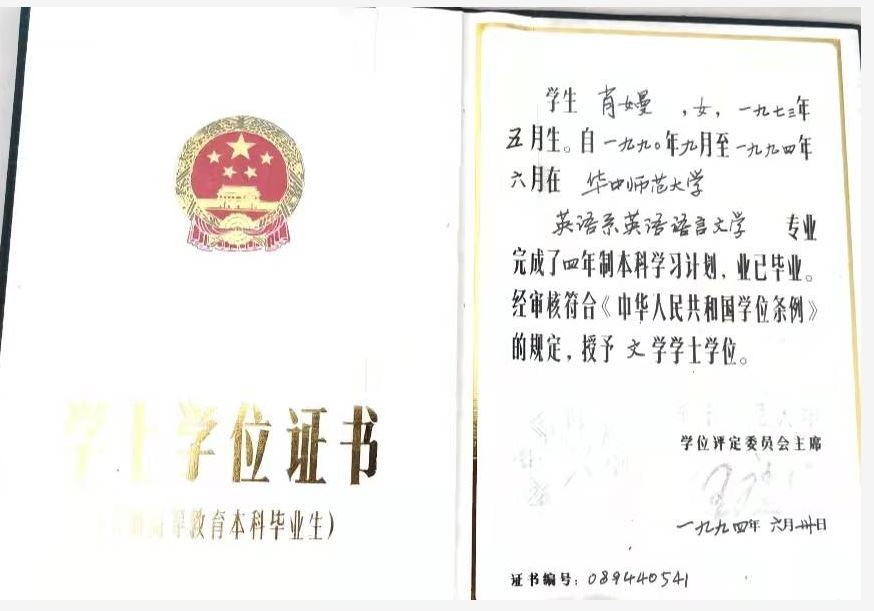 学士学位证书
高等教育本科毕业生）
学生 肖嫚 ，女，一九七三年
五月生。自一九九〇年九月至一九九四年
六月在 华中师范大学
英语系英语语言文学 专业
完成了四年制本科学习计划，业已毕业。
经审核符合《中华人民共和国学位条例》
的规定，授予 文 学学士学位。
学位评定委员会主席
一九九四年 六月卅日
证书编号：089440541